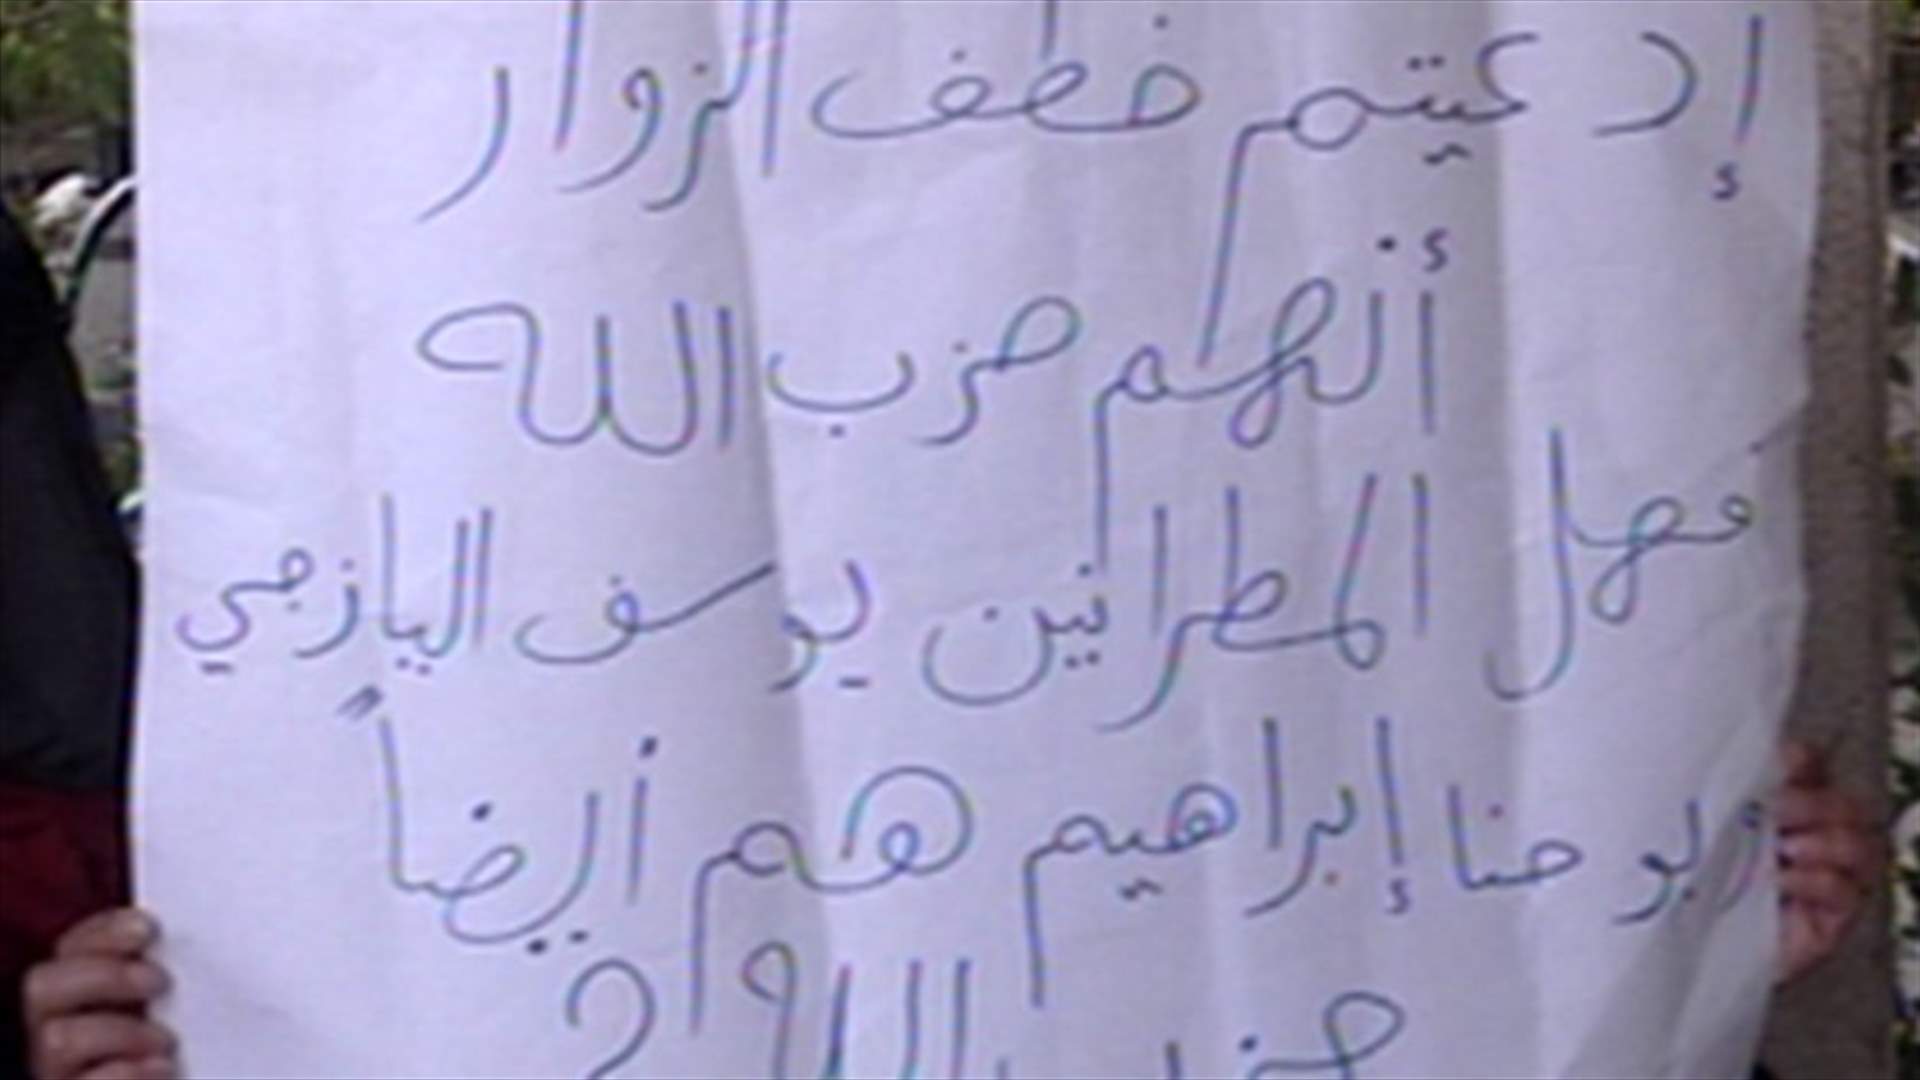 إدعيتم خطف الزوار
أنهم حزب الله
فهل المطرانين يوسف اليازجي
ويوحنا إبراهيم هم أيضاً
حزب الله ؟